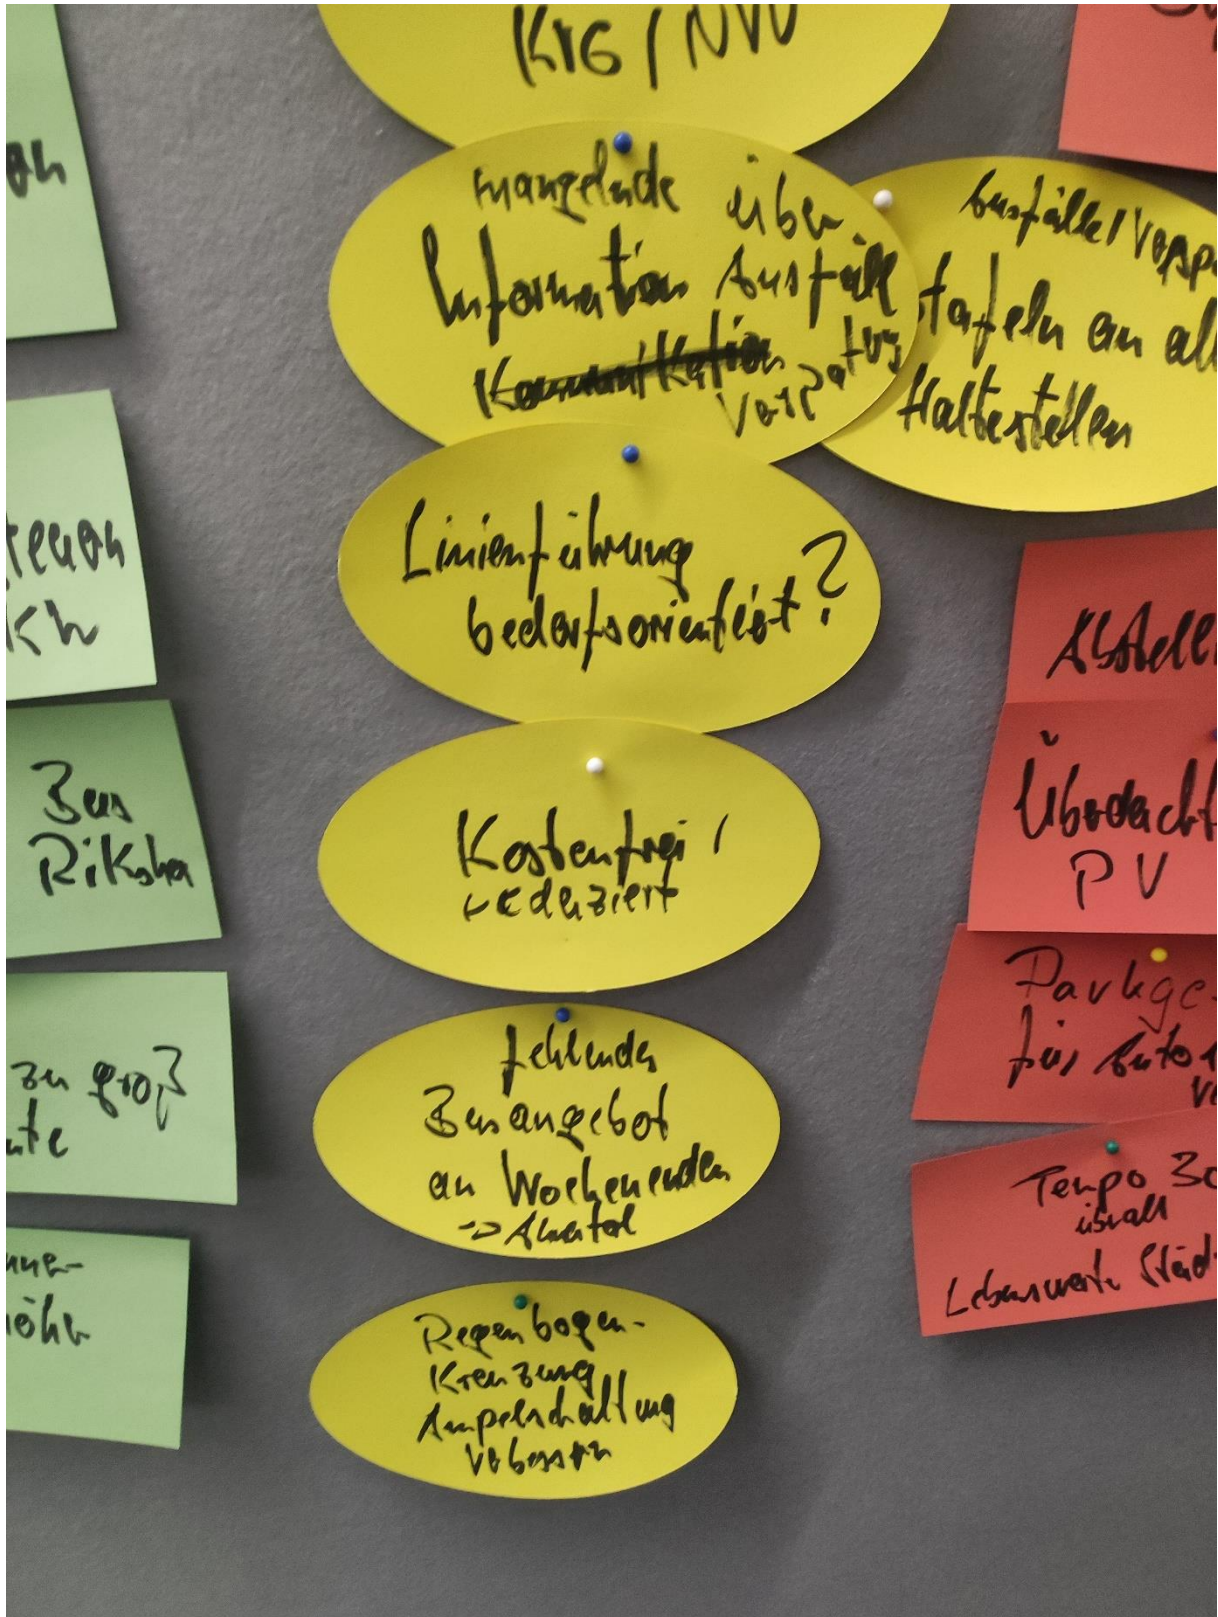 mangelnde über
Information Ausfäll
Kommunikation
Verspätug
Ausfälle / Versp
tafeln an all
Haltestellen
Linienführung
bedarfsorientiert?
Kostenfrei /
reduziert
fehlendes
Busangebot
an Wochenenden
-> Ahrtal
Regenbogen-
Kreuzung
Ampelschaltung
verbessern
Bus
Riksha
zu groß
Abstell
Überdacht
PV
Parkge
für Auto
Tempo 30
überall
Lebenswerte Städ